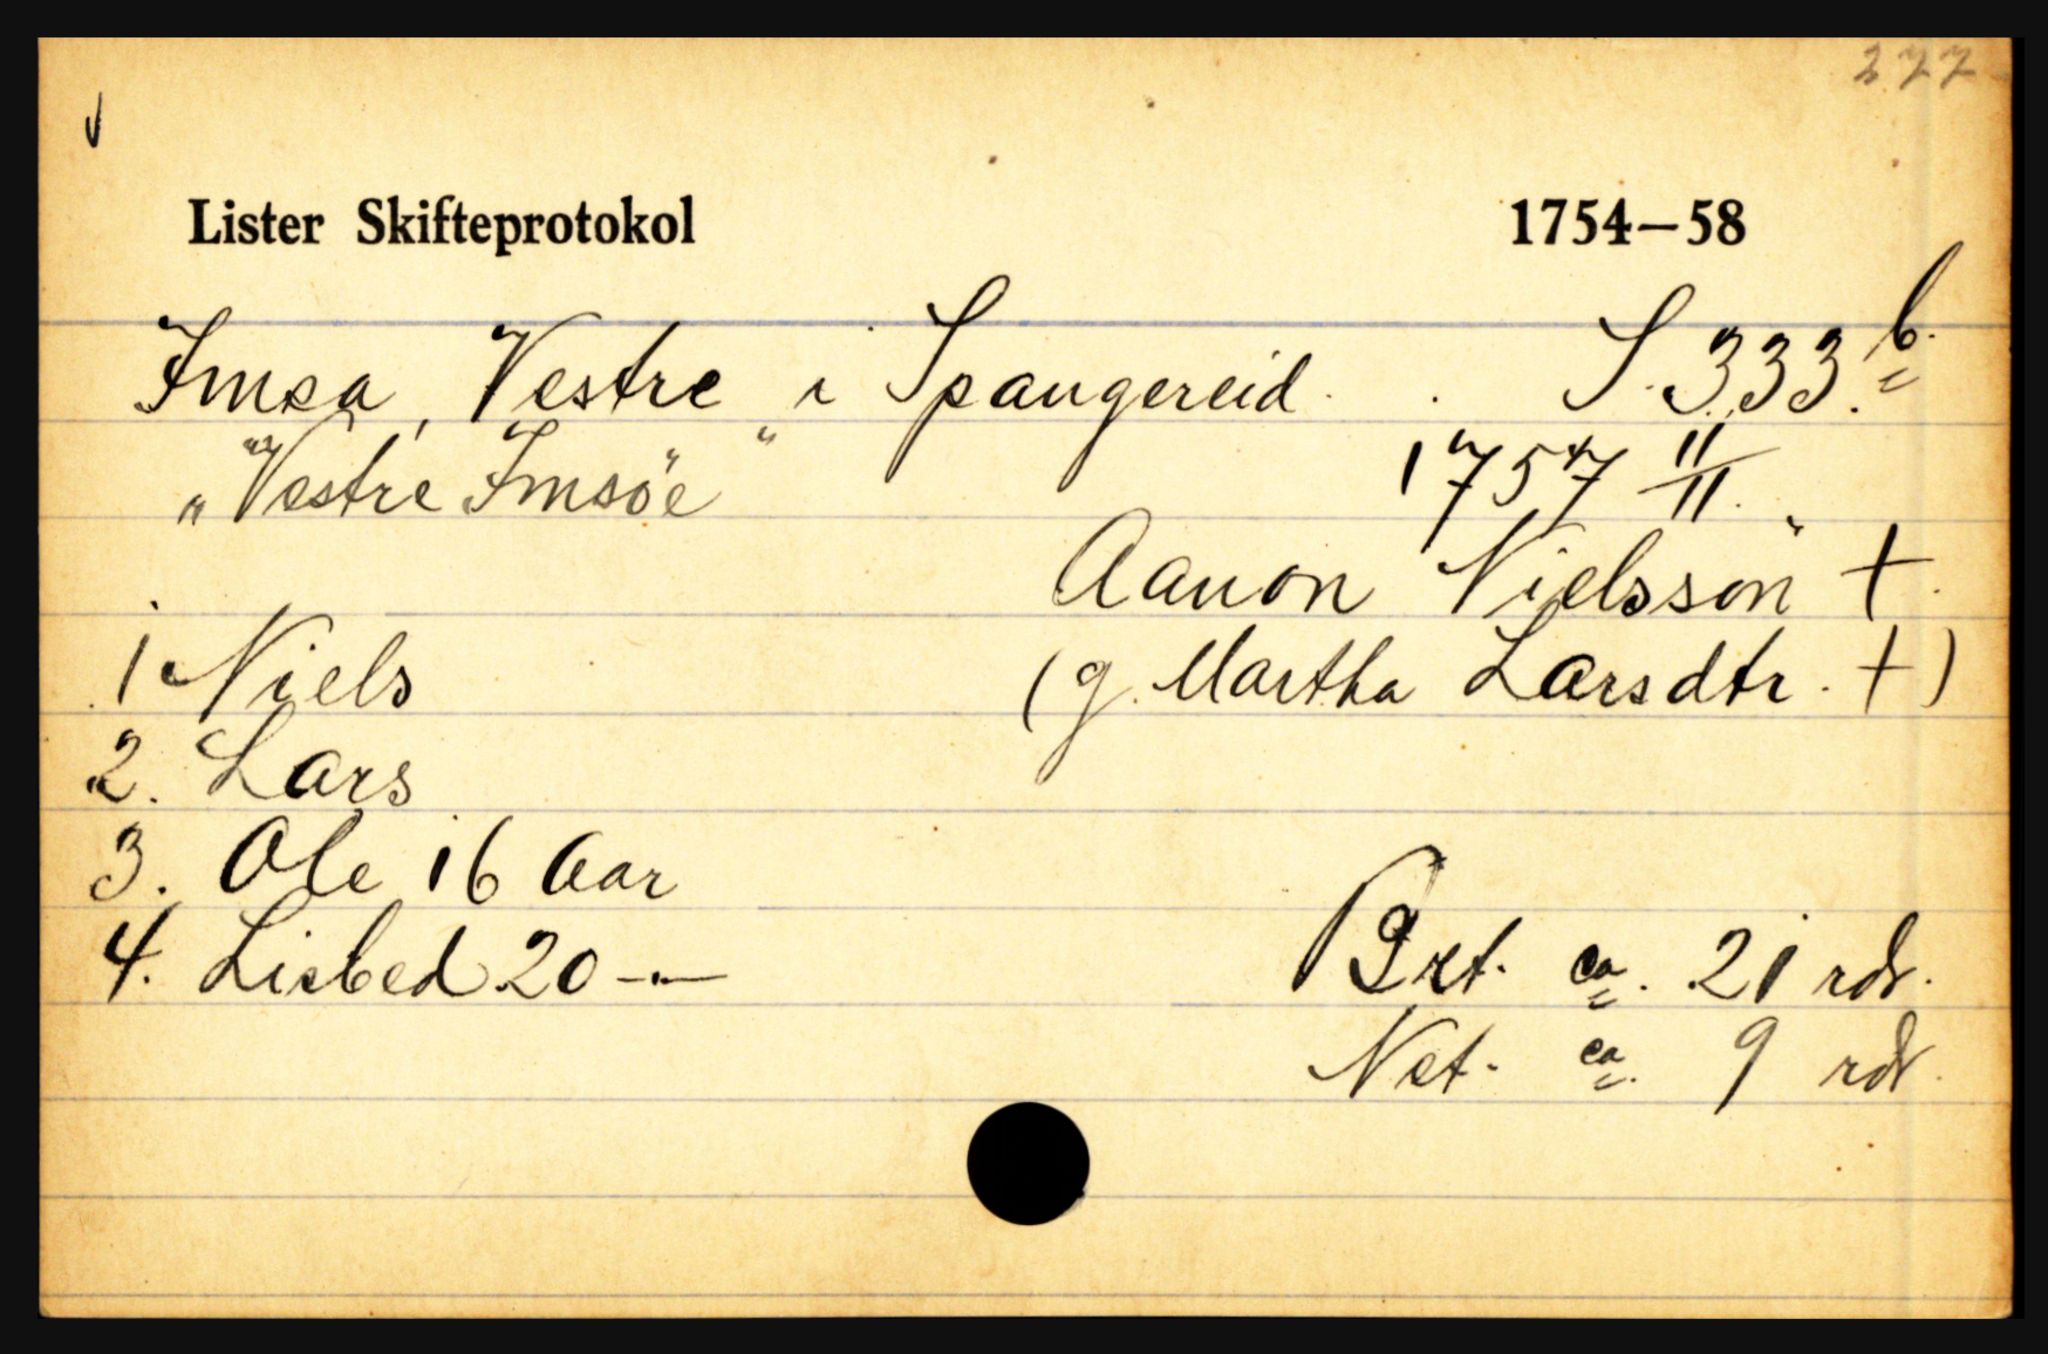 277
Lister Skifteprotokol 1754–58
Imsa, Vestre i Spangereid. S. 333.b.
"Vestre Imsöe" 1757 11/11.
Aanon Nielssön +.
1 Niels (g. Martha Larsdtr. +)
2. Lars
3. Ole 16 Aar
4. Lisbed 20 -"- Brt. ca. 21 rdr.
Net. ca. 9 rdr.